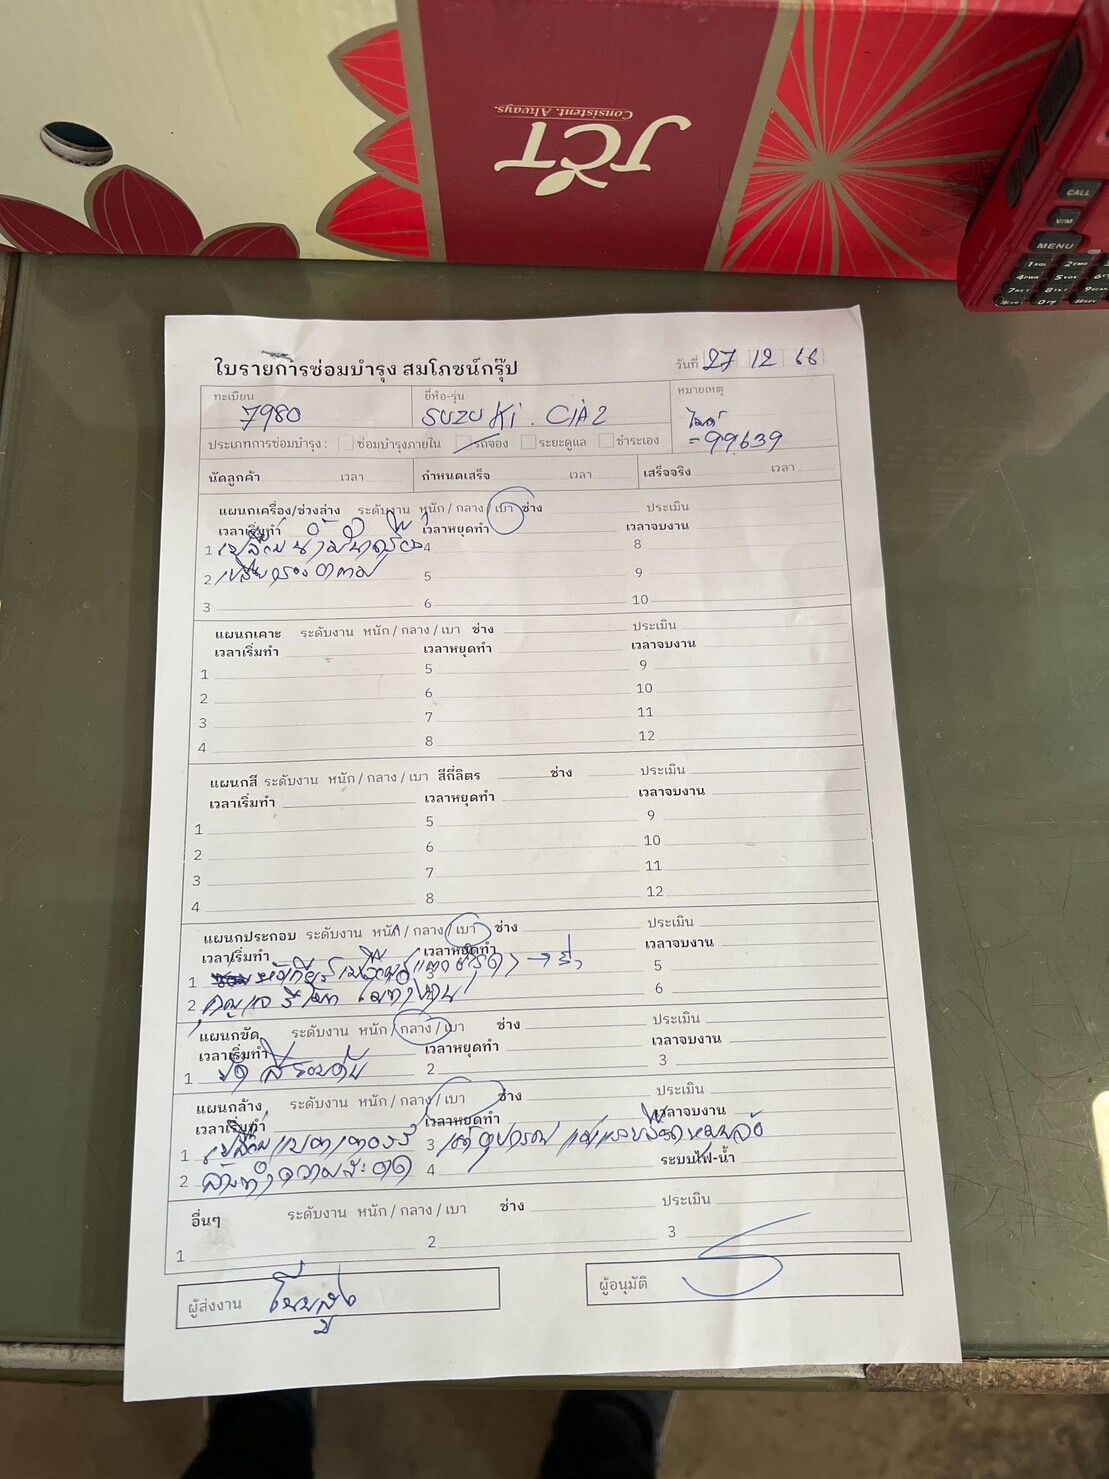 JCT
Consistent. Always.
CALL
V/M
MENU
ใบรายการซ่อมบำรุง สมโภชน์กรุ๊ป
วันที่ 27 12 66
ทะเบียน 7980
ยี่ห้อ-รุ่น SUZUKI . CIA2
หมายเหตุ ไมล์ = 99639
ประเภทการซ่อมบำรุง : ซ่อมบำรุงภายใน รถจอง ระยะดูแล ชำระเอง
นัดลูกค้า เวลา กำหนดเสร็จ เวลา เสร็จจริง เวลา
แผนกเครื่อง/ช่วงล่าง ระดับงาน หนัก / กลาง / เบา ช่าง ประเมิน
เวลาเริ่มทำ เวลาหยุดทำ เวลาจบงาน
1 เปลี่ยนน้ำมันเครื่อง 4 8
2 5 9
3 6 10
แผนกเคาะ ระดับงาน หนัก / กลาง / เบา ช่าง ประเมิน
เวลาเริ่มทำ เวลาหยุดทำ เวลาจบงาน
1 5 9
2 6 10
3 7 11
4 8 12
แผนกสี ระดับงาน หนัก / กลาง / เบา สีกี่ลิตร ช่าง ประเมิน
เวลาเริ่มทำ เวลาหยุดทำ เวลาจบงาน
1 5 9
2 6 10
3 7 11
4 8 12
แผนกประกอบ ระดับงาน หนัก / กลาง / เบา ช่าง ประเมิน
เวลาเริ่มทำ เวลาหยุดทำ เวลาจบงาน
1 หัวเกียร์ 5
2 กุญแจรีโมท ไม่ทำงาน 6
แผนกขัด ระดับงาน หนัก / กลาง / เบา ช่าง ประเมิน
เวลาเริ่มทำ เวลาหยุดทำ เวลาจบงาน
1 ขัดสีรอบคัน 2 3
แผนกล้าง ระดับงาน หนัก / กลาง / เบา ช่าง ประเมิน
เวลาเริ่มทำ เวลาหยุดทำ เวลาจบงาน
1 เปลี่ยนแบตเตอรี่ 3
2 ล้างทำความสะอาด 4 ระบบไฟ-น้ำ
อื่นๆ ระดับงาน หนัก / กลาง / เบา ช่าง ประเมิน
1 2 3
ผู้ส่งงาน
ผู้อนุมัติ